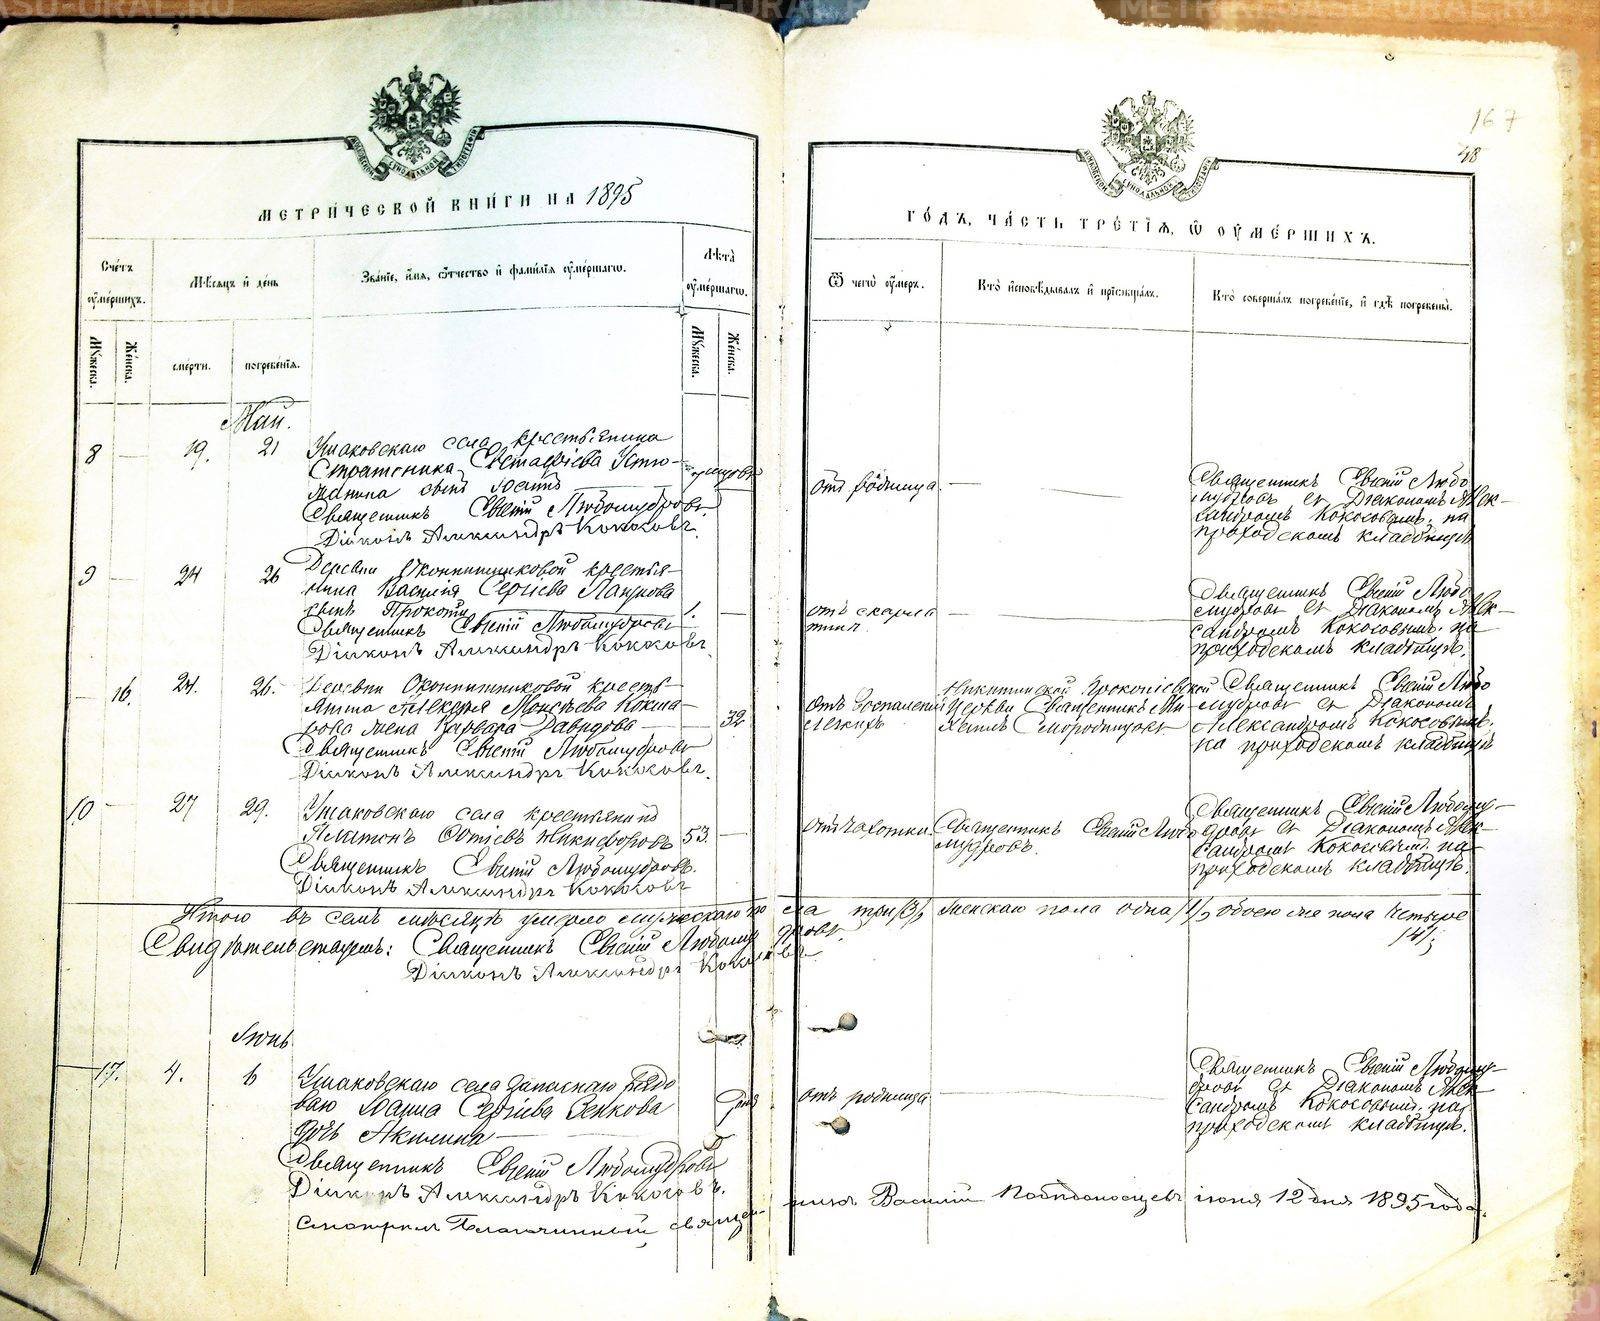 METRIKI.GASO-URAL.RU
METRIKI.GASO-URAL.RU
METRIKI.GASO-URAL.RU
167
48
МЕТРИЧЕСКОЙ КНИГИ НА 1895
ГОДЪ, ЧАСТЬ ТРЕТІЯ, Ѿ ОУМЕРШИХЪ.
Счетъ оумершихъ.
Мѣсяцъ и день
Званіе, имя, отчество и фамилія оумершагѡ.
Лѣта оумершагѡ.
Ѿ чегѡ оумеръ.
Кто исповѣдывалъ и пріобщалъ.
Кто совершалъ погребеніе, и гдѣ погребены.
Мужеска.
Женска.
смерти.
погребенія.
Мужеска.
Женска.
Май.
8 19. 21
Ушаковскаго села крестьянина
Стратоника Евстафіева Устю-
жанина сынъ
Священникъ Евгеній Любомудровъ.
Діаконъ Александръ Кокосовъ.
отъ родимца
Священникъ Евгеній Любо
мудровъ съ Діакономъ Алек-
сандромъ Кокосовымъ, на
приходскомъ кладбищѣ
9 24 26
Деревни Окатышковой крестья-
нина Василія Сергіева
сынъ Прокопій 1.
Священникъ Евгеній Любомудровъ
Діаконъ Александръ Кокосовъ.
отъ скарла
тины.
Священникъ Евгеній Любо
мудровъ съ Діакономъ Алек-
сандромъ Кокосовымъ, на
приходскомъ кладбищѣ.
16. 24. 26.
Деревни крестья-
нина Алексѣя Моисѣева
жена Варвара Давидова 32
Священникъ Евгеній Любомудровъ
Діаконъ Александръ Кокосовъ.
отъ воспаленія
легкихъ
Никитинской Прокопіевской
церкви Священникъ Ми-
хаилъ Смородинцевъ
Священникъ Евгеній Любо
мудровъ съ Діакономъ
Александромъ Кокосовымъ,
на приходскомъ кладбищѣ
10 27 29.
Ушаковскаго села крестьянинъ
Платонъ Никифоровъ 53.
Священникъ Евгеній Любомудровъ.
Діаконъ Александръ Кокосовъ
отъ чахотки.
Священникъ Евгеній Любо
мудровъ.
Священникъ Евгеній Любому-
дровъ съ Діакономъ Алек-
сандромъ Кокосовымъ, на
приходскомъ кладбищѣ.
Итого въ семъ мѣсяцѣ умерло мужескаго по ла три /3/, женскаго пола одна /1/, обоего же пола четыре
/4/;
Свидѣтельствуемъ: Священникъ Евгеній Любому дровъ.
Діаконъ Александръ Кокосовъ.
Іюнь
17. 4. 6
Ушаковскаго села запаснаго рядо
ваго Іоанна Сергіева Зенкова
дочь Акилина
Священникъ Евгеній Любомудровъ
Діаконъ Александръ Кокосовъ.
отъ родимца
Священникъ Евгеній Любому-
дровъ съ Діакономъ Алек-
сандромъ Кокосовымъ, на
приходскомъ кладбищѣ.
Смотрѣлъ Благочинный, священ- никъ Василій Побѣдоносцевъ іюня 12 дня 1895 года.